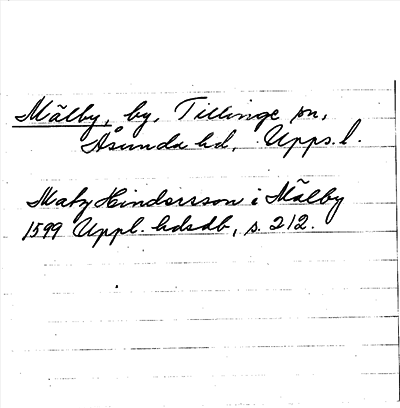 Mälby, by, Tillinge sn,
Åsunda hd, Upps. l.
Matz Hindersson i Mälby
1599 Uppl. hdsdb, s. 212.